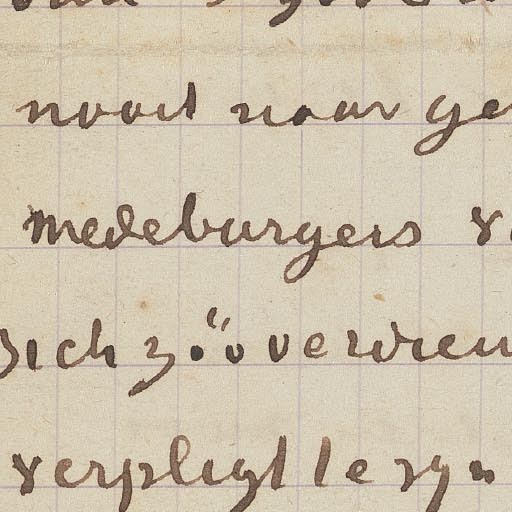 nooit naar ge
medeburgers v
zich zóó verdien
verpligt te zyn